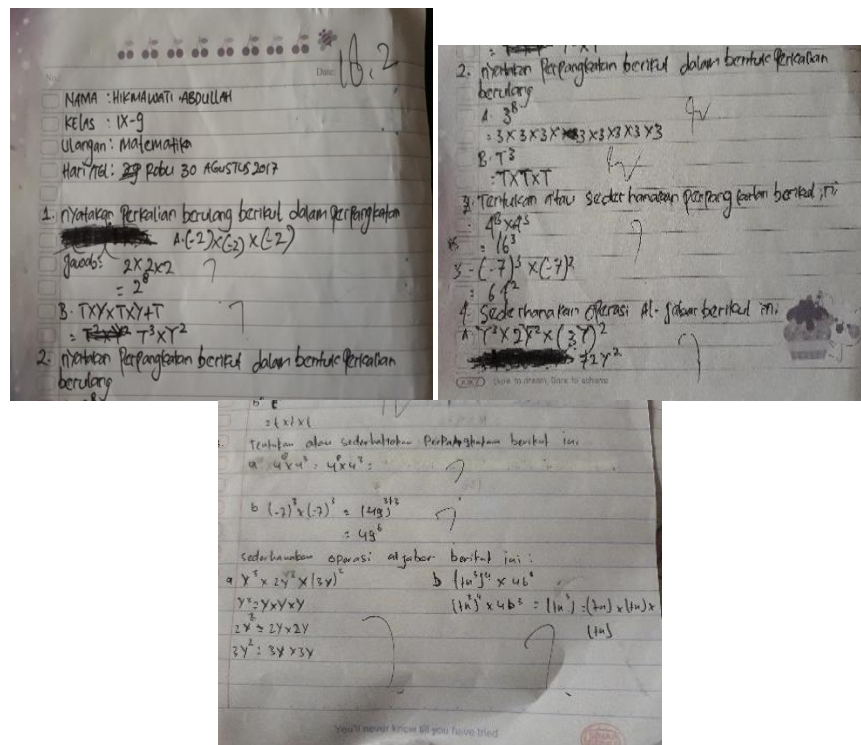 18.2
No.
Date
NAMA : HIKMAWATI ABDULLAH
KELAS : IX-g
Ulangan : Matematika
Hari/TGL : Rabu 30 AGUSTUS 2017
1. nyatakan Perkalian berulang berikut dalam perpangkatan
A. (-2) × (-2) × (-2)
Jawab: 2×2×2
= 2⁸
B. T×Y×T×Y+T
= T³×Y²
2. nyatakan Perpangkatan berikut dalam bentuk Perkalian
berulang
2. nyatakan Perpangkatan berikut dalam bentuk Perkalian
berulang
A. 3⁸
= 3×3×3×3×3×3×3×3
B. T³
= T×T×T
3. Tentukan atau sederhanakan perpangkatan berikut ini
= 16³
(-7)³ × (-7)²
4. Sederhanakan operasi Al-jabar berikut ini
A. Y³ × 2Y² × (3Y)²
72Y²
Dare to dream, Dare to achieve
Tentukan atau sederhanakan Perpangkatan berikut ini
b (-7)³ × (-7)³ = (49)³⁺³
= 49⁶
sederhanakan operasi aljabar berikut ini :
a Y³ × 2Y² × (3Y)²
Y³ = Y×Y×Y
2Y² = 2Y × 2Y
3Y² = 3Y × 3Y
You'll never know till you have tried